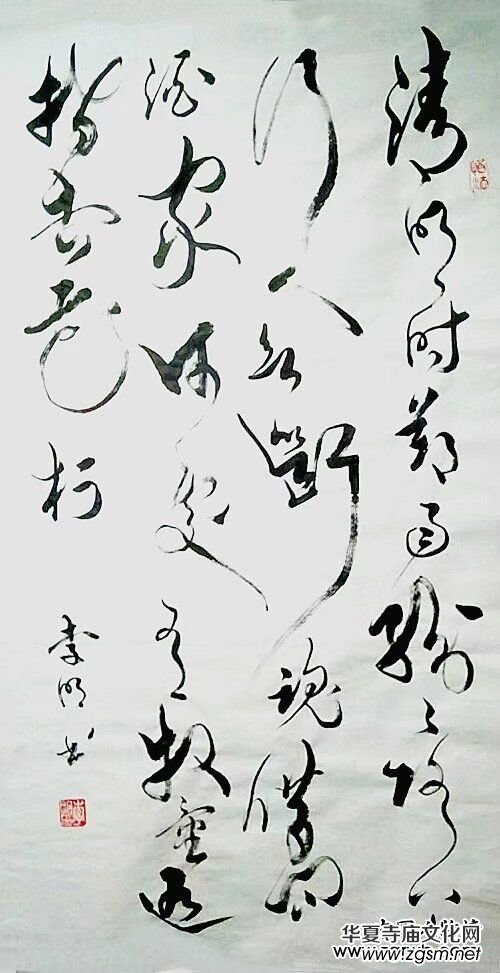 清明时节雨纷々路上
行人欲斷魂借问
酒家何处有牧童遥
指杏花村
李明书
华夏寺庙文化网
www.zgsm.net